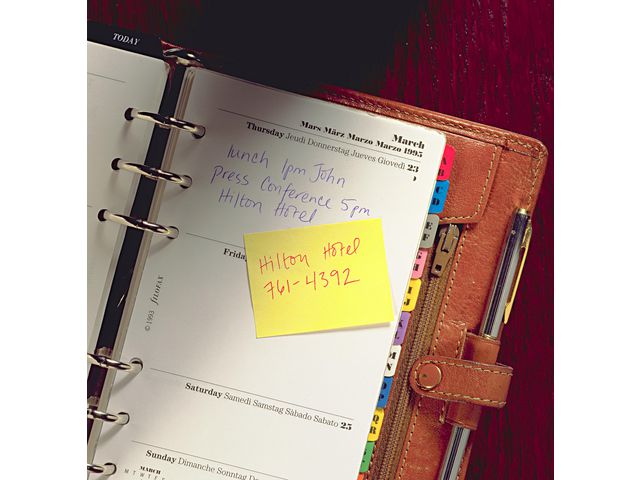 TODAY
March
Mars März Marzo Marzo 1995
Thursday Jeudi Donnerstag Jueves Giovedì 23
lunch 1pm John
Press Conference 5pm
Hilton Hotel
Frida
Hilton Hotel
761-4392
© 1993 FILOFAX
Saturday Samedi Samstag Sàbado Sabato 25
Sunday Dimanche Sonntag Do
MARCH
M T W T F
A
B
C
D
E
F
M
N
Q
R